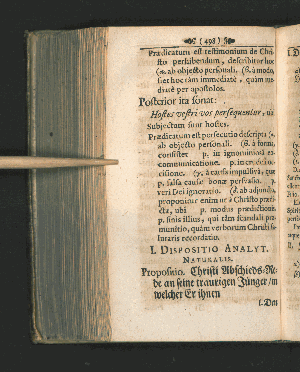 (498)
Prædicatum est testimonium de Chri-
sto perhibendum, describitur hoc
(α. ab objecto personali. (β. à modo,
fiet hoc tàm immediatè, quàm me-
diatè per apostolos.
Posterior ita sonat:
Hostes vestri vos persequentur, ubi
Subjectum sunt hostes.
Prædicatum est persecutio descripta (α.
ab objecto personali. (β. à formâ,
consistet p. in ignominiosâ ex-
communicatione. p. in crudeli oc-
cisione. (γ. à causa impulsivâ, quæ
p. falsa causa: bona persuasio. p.
veri Dei ignoratio. (δ. ab adjunctis,
proponitur enim ut à Christo præd-
icta, ubi p. modus prædictionis
p. finis illius, qui tàm scandali præ-
munitio, quàm verborum Christi sa-
lutaris recordatio.
I. DISPOSITIO ANALYT.
NATURALIS.
Propositio. Christi Abschieds-Re-
de an seine traurigen Jünger/in
welcher Er ihnen